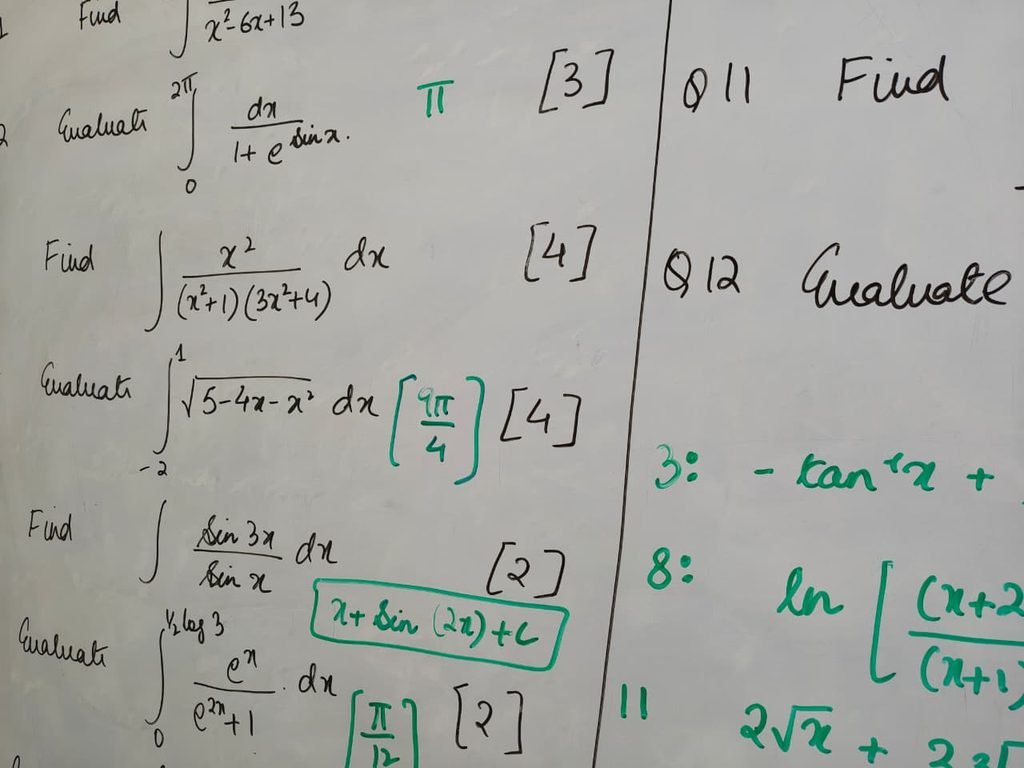 1 Find ∫ x²-6x+13
2 Evaluate ∫₀^2π dx / 1+e^sin x. π [3]
Find ∫ x² / (x²+1)(3x²+4) dx [4]
Evaluate ∫₋₂^1 √5-4x-x² dx [9π/4] [4]
Find ∫ Sin 3x / Sin x dx [2]
x + Sin (2x) + C
Evaluate ∫₀^½ log 3 e^x / e^2x+1 . dx [π/12] [2]
Q11 Find
Q12 Evaluate
3: - tan⁻¹x +
8: ln [ (x+2 / (x+1)
11 2√x +